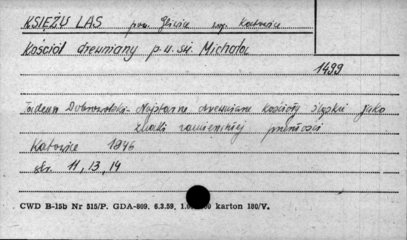 KSIĘŻY LAS pow. Gliwice woj. Katowice
Kościół drewniany p.w. św. Michała
1499
Tadeusz Dobrowolski - Najstarsze drewniane kościoły śląskie jako
znaki tamtejszej
Katowice 1946
str. 11, 13, 14
CWD B-15b Nr 515/P. GDA-869. 6.3.59, 1.0 00 karton 180/V.